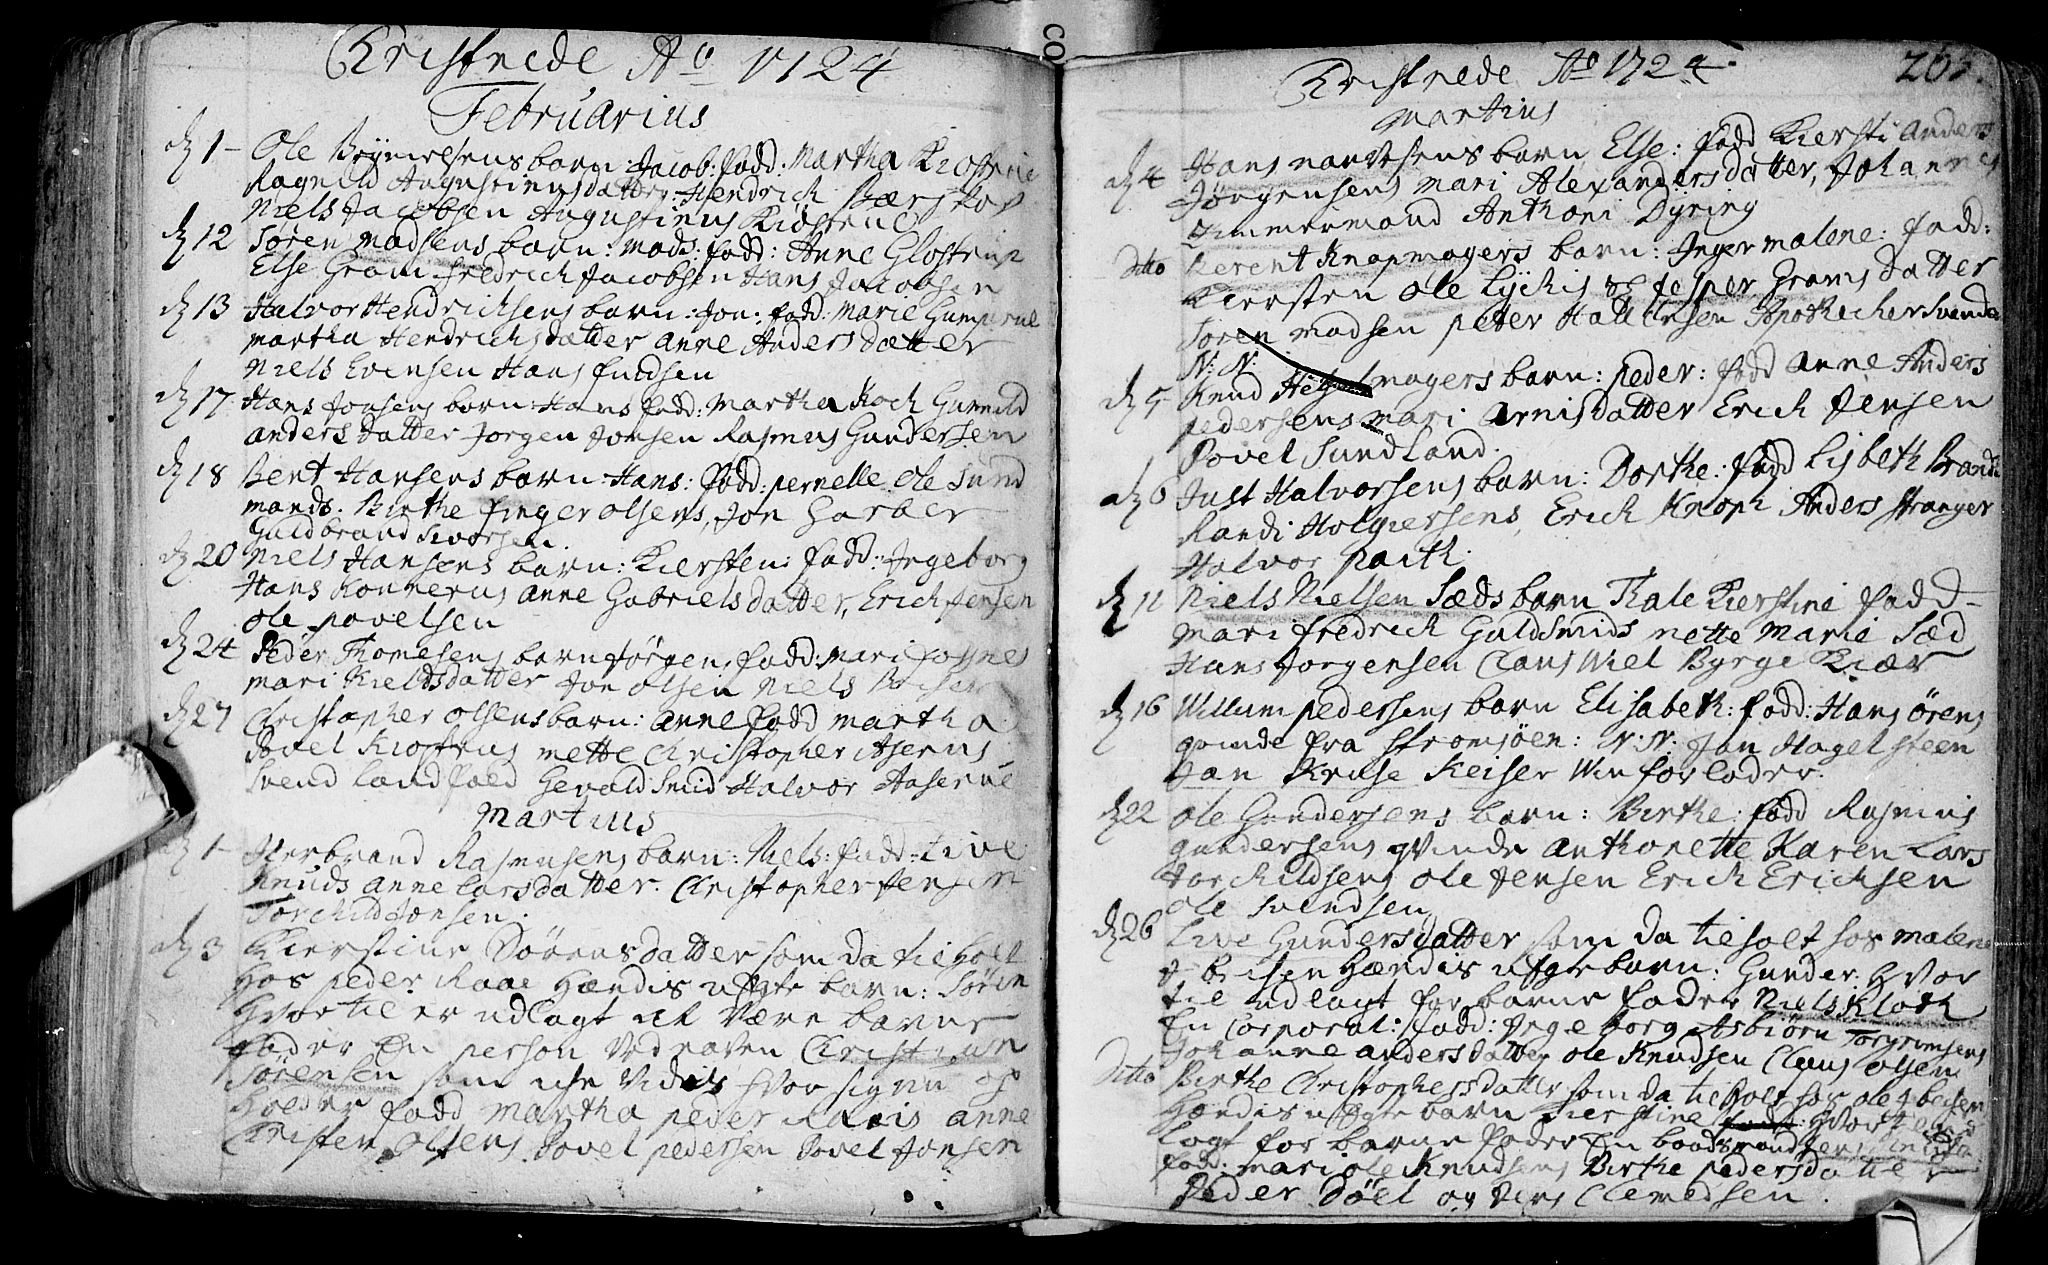 Kristnede Ao 1724
Februarius
dn 1 Ole Brynielsens barn: Jacob: fadd: Martha Kiøsterie
Ragnild Augustinusdatter: Hendrick
Niels Jacobsen Augustinus Kiøsterud
dn 12 Søren Madsens barn: Mads: fadd: Anne Glostrup
Else Gram Fredrich Jacobsen Hans Jacobsen
dn 13 Halvor Hendrichsens barn: Jon: fadd: Marie
martha Hendrichsdatter anne Andersdatter
Niels Evensen Hans
dn 17 Hans Jonsens barn Hans fadd: Martha Koch Gunnild
anders datter Jorgen Jonsen Rasmus Gundersen
dn 18 Bent Hansens barn Hans: fadd: pernelle ole Sund
mands. Birthe finger olsens, Jon Garber
Guldbrand Siversen.
dn 20 Niels Hansens barn: Kiersten: fadd: Ingeborg
Hans anne Gabrielsdatter, Erich Jensen
ole povelsen
dn 24 Peder Thomesens barn Jørgen, fadd: Mari
mari Kieldsdatter Jon olsen Niels
dn 27 Christopher olsens barn: anne fadd martha
Povel mette Christopher Aserus
Svend Landfald Gerald Smid Halvor Aaserue
Martius
1 Herbrand Rasmusens barn: Niels: fadd: Live
Knuds anne Larsdatter. Christopher Jensen
Torchild Jonsen.
dn 3 Kierstine Sørensdatter som da tilholt
hos peder Raae Hændis uEgte barn: Sørin
Hvortil er udlagt at Være barne
fader En person Ved naven Christian
Sørensen som icke Vides hvor sig nu op
holder fadd Martha peder Raais anne
Christen Olsens Povel pedersen Povel Jonsen
Kristnede Ao 1724.
Martius
dn 4 Hans narvesens barn Else: fadd Kiersti Anders
Jørgensens mari Alexandersdatter, Johannes
Timmermand Anthoni Dyring
ditto Berent Knapmagers barn: Inger malene: fadd:
Kiersten ole Lychis Jesper Grams datter
Søren madsen peter Apothecher Svende
N: N:
dn 5 Knud magers barn: peder: fadd Anne Anders
pedersens mari Arnisdatter Erich Jensen
Povel Sundland.
dn 6 Just Halvorsens barn: Dorthe: fadd Lisbeth Brandt
Randi Holgiersens, Erich Knoph Anders Stranger
Halvor
dn 11 Niels Nielsen Sæds barn Thale Kierstine fadd
Mari Fredrich Guldsmids mette Marie Sæd
Hans Jorgensen Claus Wiel Byrge Kiær
dn 16 Willum pedersens barn Elisabeth: fadd: Hans ørens
qvinde fra Stromsøen: N: N: Jan Hagelsteen
Jan Kruse Keiser Winforlader.
dn 22 ole Gundersens barn: Birthe: fadd Rasmus
gundersens qvinde Anthonette Karen Lars
Torchildsens ole Jensen Erich Erichsen
ole Svendsen
dn 26 Live Gundersdatter som da tilholt hos malene
Hændis uEgte barn: Gunder: Hvor
til udlagt for barne fader Niels Kloth
En Corporal: fadd: Ingeborg Asbiørn
Johanne andersdatter ole Knudsen Claus olsen
ditto Birthe Christophersdatter som da tilholt hos ole Ibesen
Hændis uEgte barn Kierstine: Hvortil ud
lagt for barne fader En baadsmand
fadd: mari ole Knudsens Birthe pedersdatter
Peder Døel og Clemedsen.